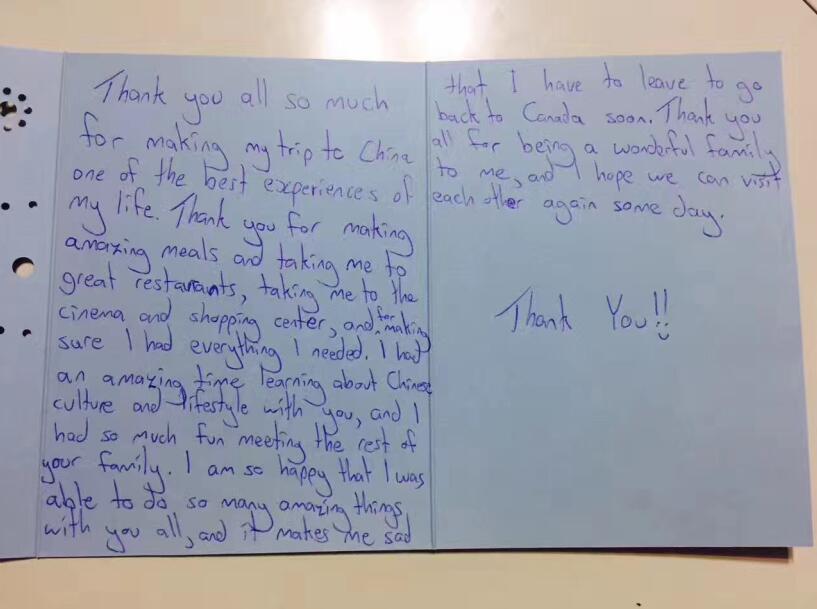 Thank you all so much
for making my trip to China
one of the best experiences of
my life. Thank you for making
amazing meals and taking me to
great restaurants, taking me to the
cinema and shopping center, and for making
sure I had everything I needed. I had
an amazing time learning about Chinese
culture and lifestyle with you, and I
had so much fun meeting the rest of
your family. I am so happy that I was
able to do so many amazing things
with you all, and it makes me sad
that I have to leave to go
back to Canada soon. Thank you
all for being a wonderful family
to me, and I hope we can visit
each other again some day.
Thank You!!